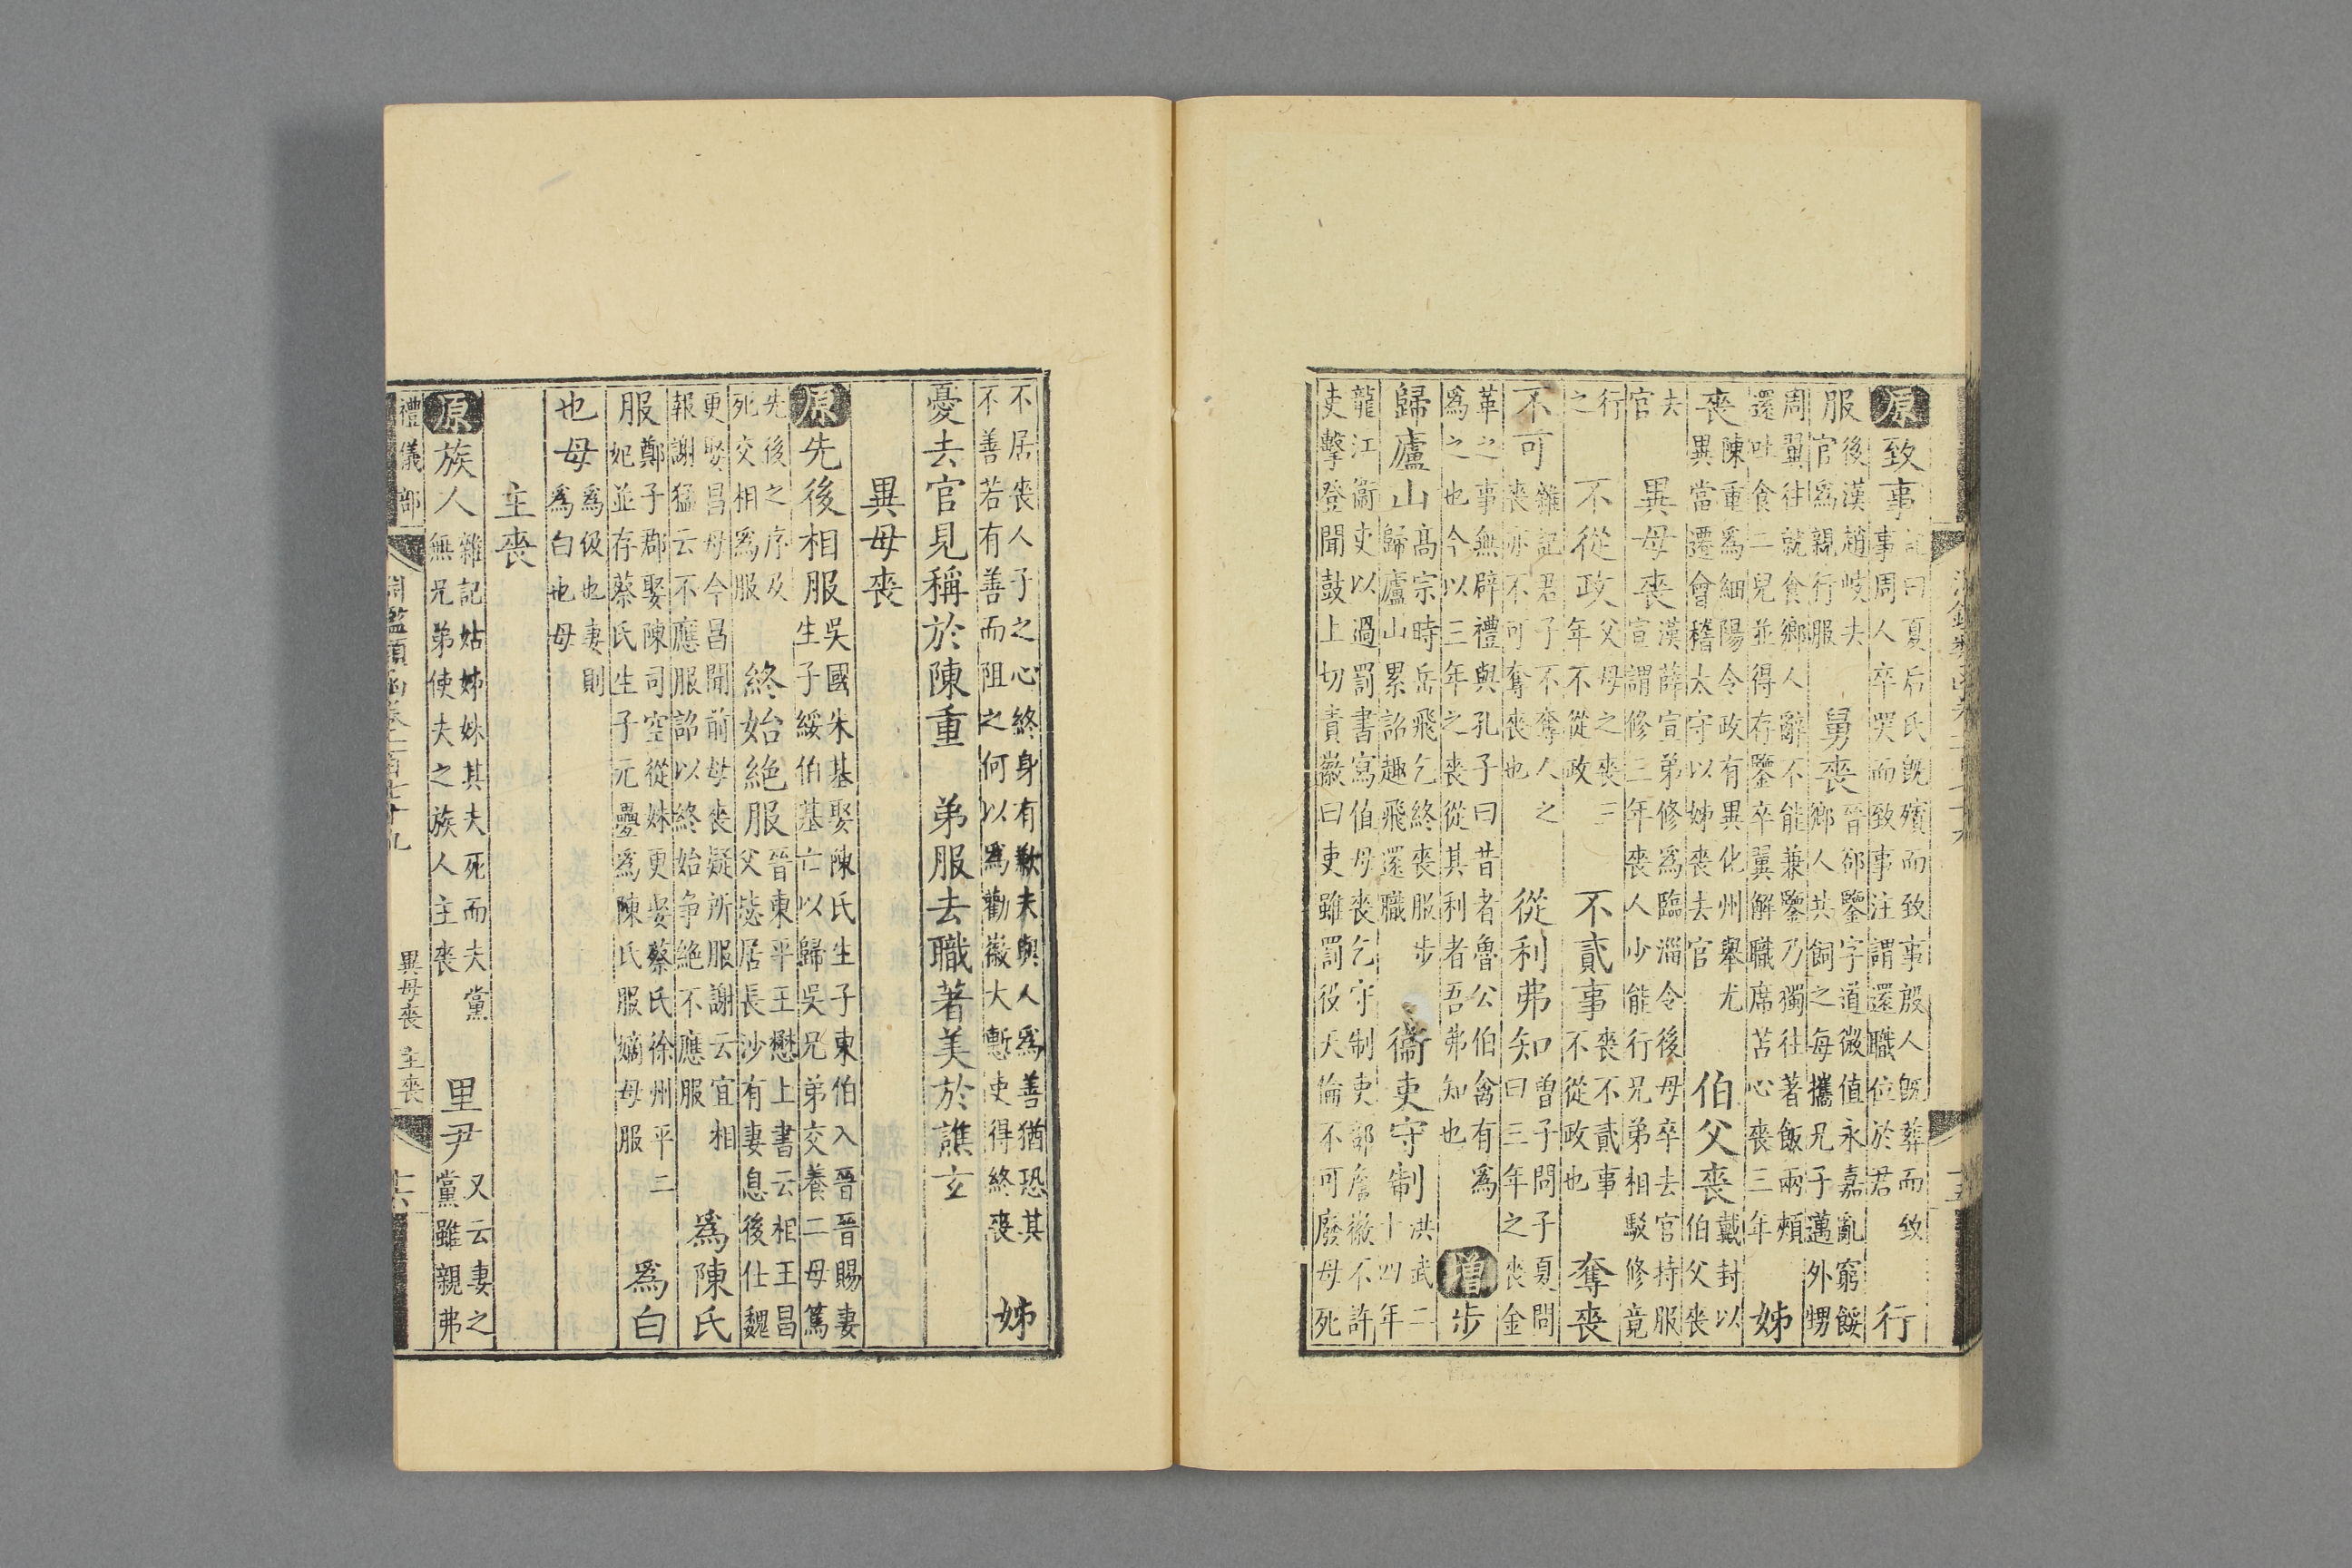 原致事記曰夏后氏旣殯而致事殷人旣葬而致
事周人卒哭而致事注謂還職位於君行
服後漢趙岐夫
官爲親行服舅喪晉郗鑒字道微值永嘉亂窮餒
鄉人共飼之每攜兄子邁外甥
周翼往就食鄉人辭不能兼鑒乃獨往著飯兩頰
還吐食二兒並得存鑒卒翼解職席苫心喪三年姊
喪陳重爲細陽令政有異化州舉尤
異當遷會稽太守以姊喪去官伯父喪戴封以
伯父喪
去
官異母喪漢薛宣弟修爲臨淄令後母卒去官持服
宣謂修三年喪人少能行兄弟相駁修竟
行
之不從政父母之喪三
年不從政不貳事喪不貳事
不從政也奪喪
不可雜記君子不奪人之
喪亦不可奪喪也從利弗知曾子問子夏問
曰三年之喪金
革之事無辟禮與孔子曰昔者魯公伯禽有爲
爲之也今以三年之喪從其利者吾弗知也增步
歸廬山高宗時岳飛乞終喪服步
歸廬山累詔趣飛還職衞吏守制洪武二
十四年
龍江衞吏以過罰書寫伯母喪乞守制吏部詹徽不許
吏擊登聞鼓上切責徽曰吏雖罰役天倫不可廢母死
不居喪人子之心終身有歉夫與人爲善猶恐其
不善若有善而阻之何以爲勸徽大慙吏得終喪姊
憂去官見稱於陳重　弟服去職著美於譙玄
異母喪
原先後相服吳國朱基娶陳氏生子東伯入晉晉賜妻
生子綏伯基亡以歸吳兄弟交養二母篤
先後之序及
死交相爲服終始絶服晉東平王懋上書云相王昌
父毖居長沙有妻息後仕魏
更娶昌母今昌聞前母喪疑所服謝云宜相
報謝猛云不應服詔以終始爭絶不應服爲陳氏
服鄭子郡娶陳司空從妹更娶蔡氏徐州平二
妃並存蔡氏生子元疊爲陳氏服嫡母服爲白
也母爲伋也妻則
爲白也母
主喪
原族人雜記姑姊妹其夫死而夫黨
無兄弟使夫之族人主喪里尹又云妻之
黨雖親弗
禮儀部　淵鑑類函卷一百七十九　異母喪　主喪　十六